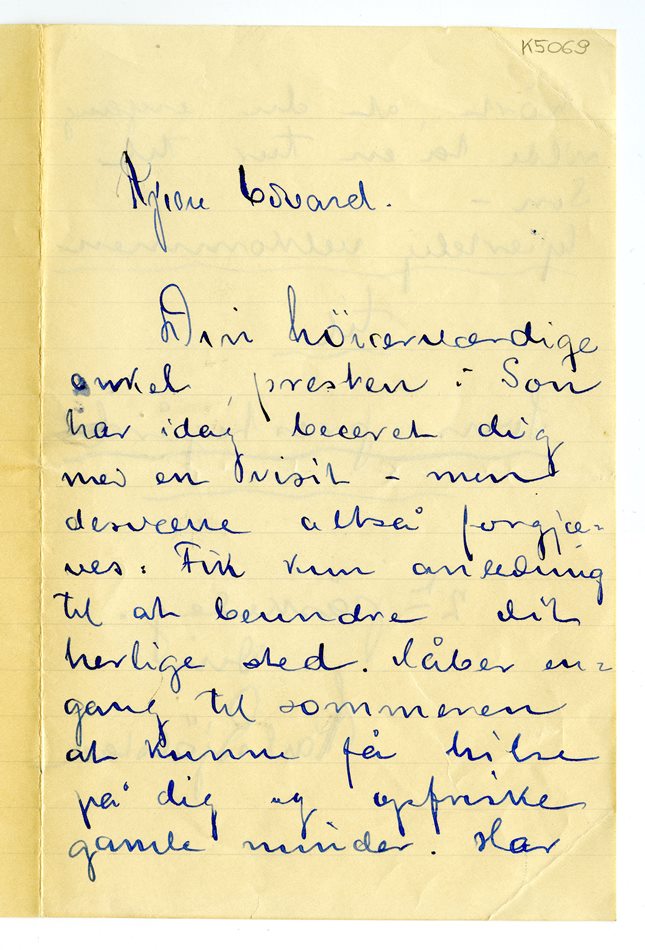 K5069
Kjære Edvard.
Din höiærværdige
onkel, presten i Son
har idag beæret dig
med en visit - men
desværre altså forgjæ=
ves. Fik kun anledning
til at beundre dit
herlige sted. Håber en=
gang til sommeren
at kunne få hilse
på dig og opfriske
gamle minder. Har